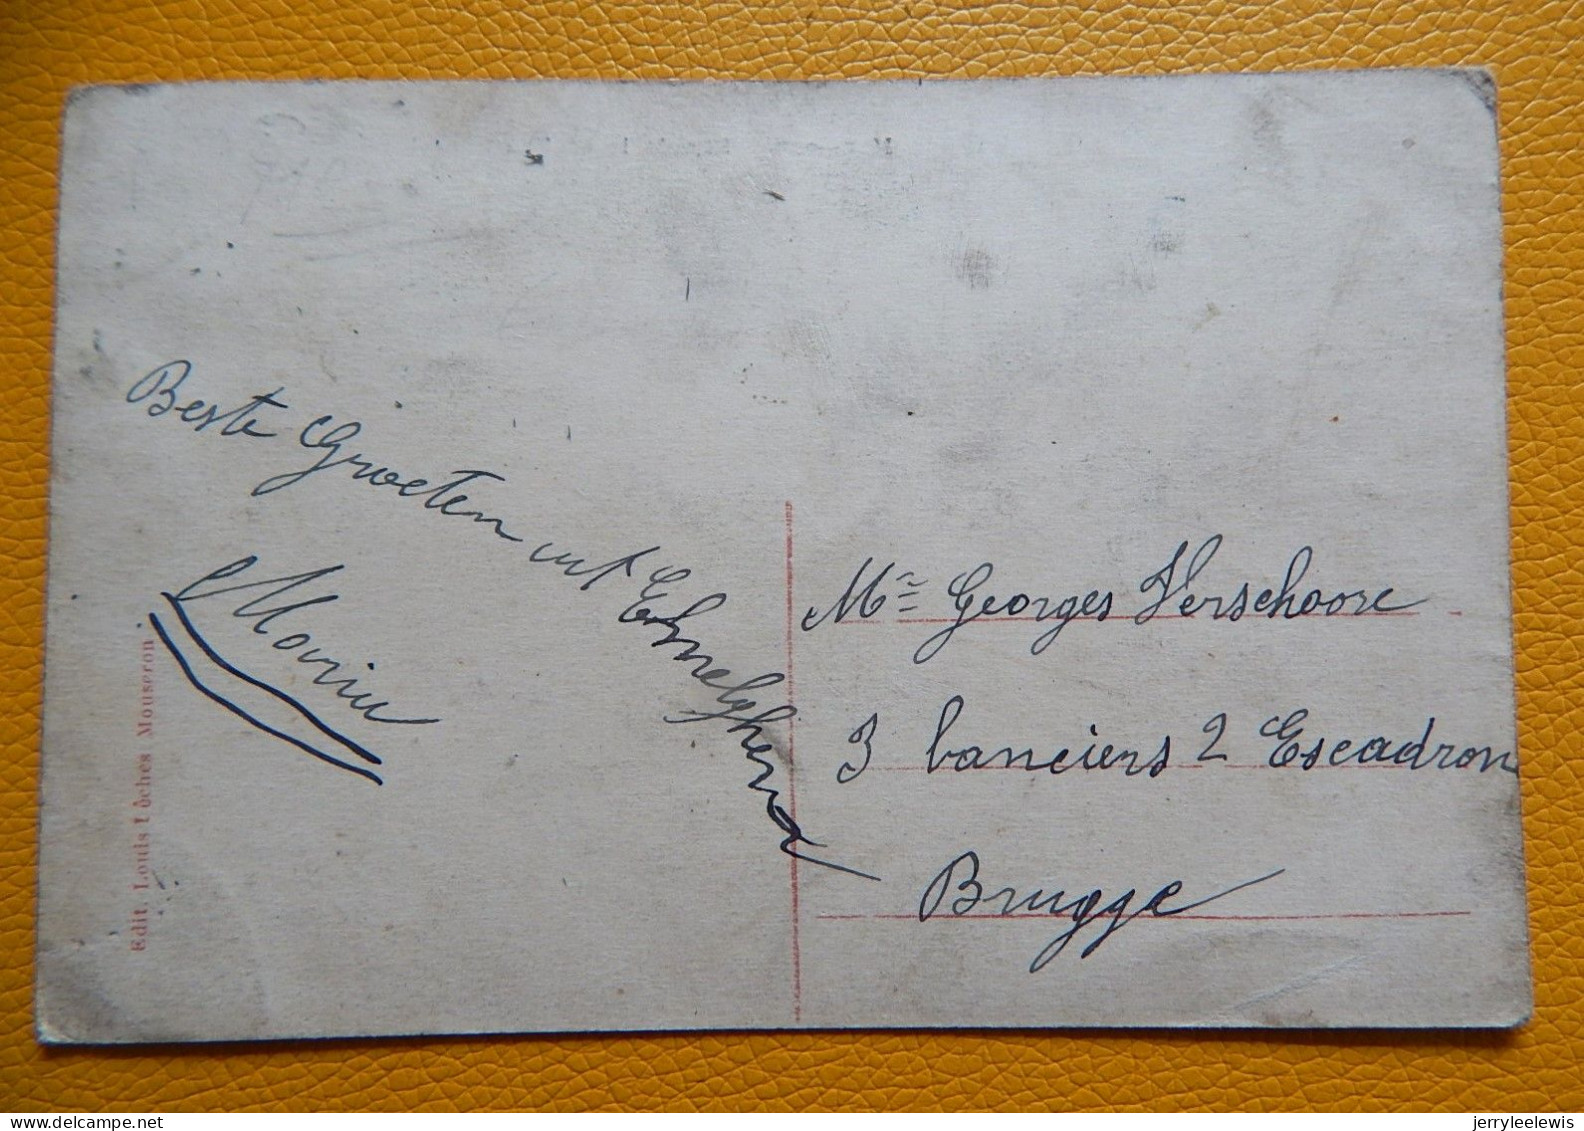 Beste Groeten uit Elsnelghend
Mr Georges Verschoore
3 lanciers 2 Escadron
Brugge
Edit. Louis Loches Mouscron.
jerryleelewis
www.delcampe.net